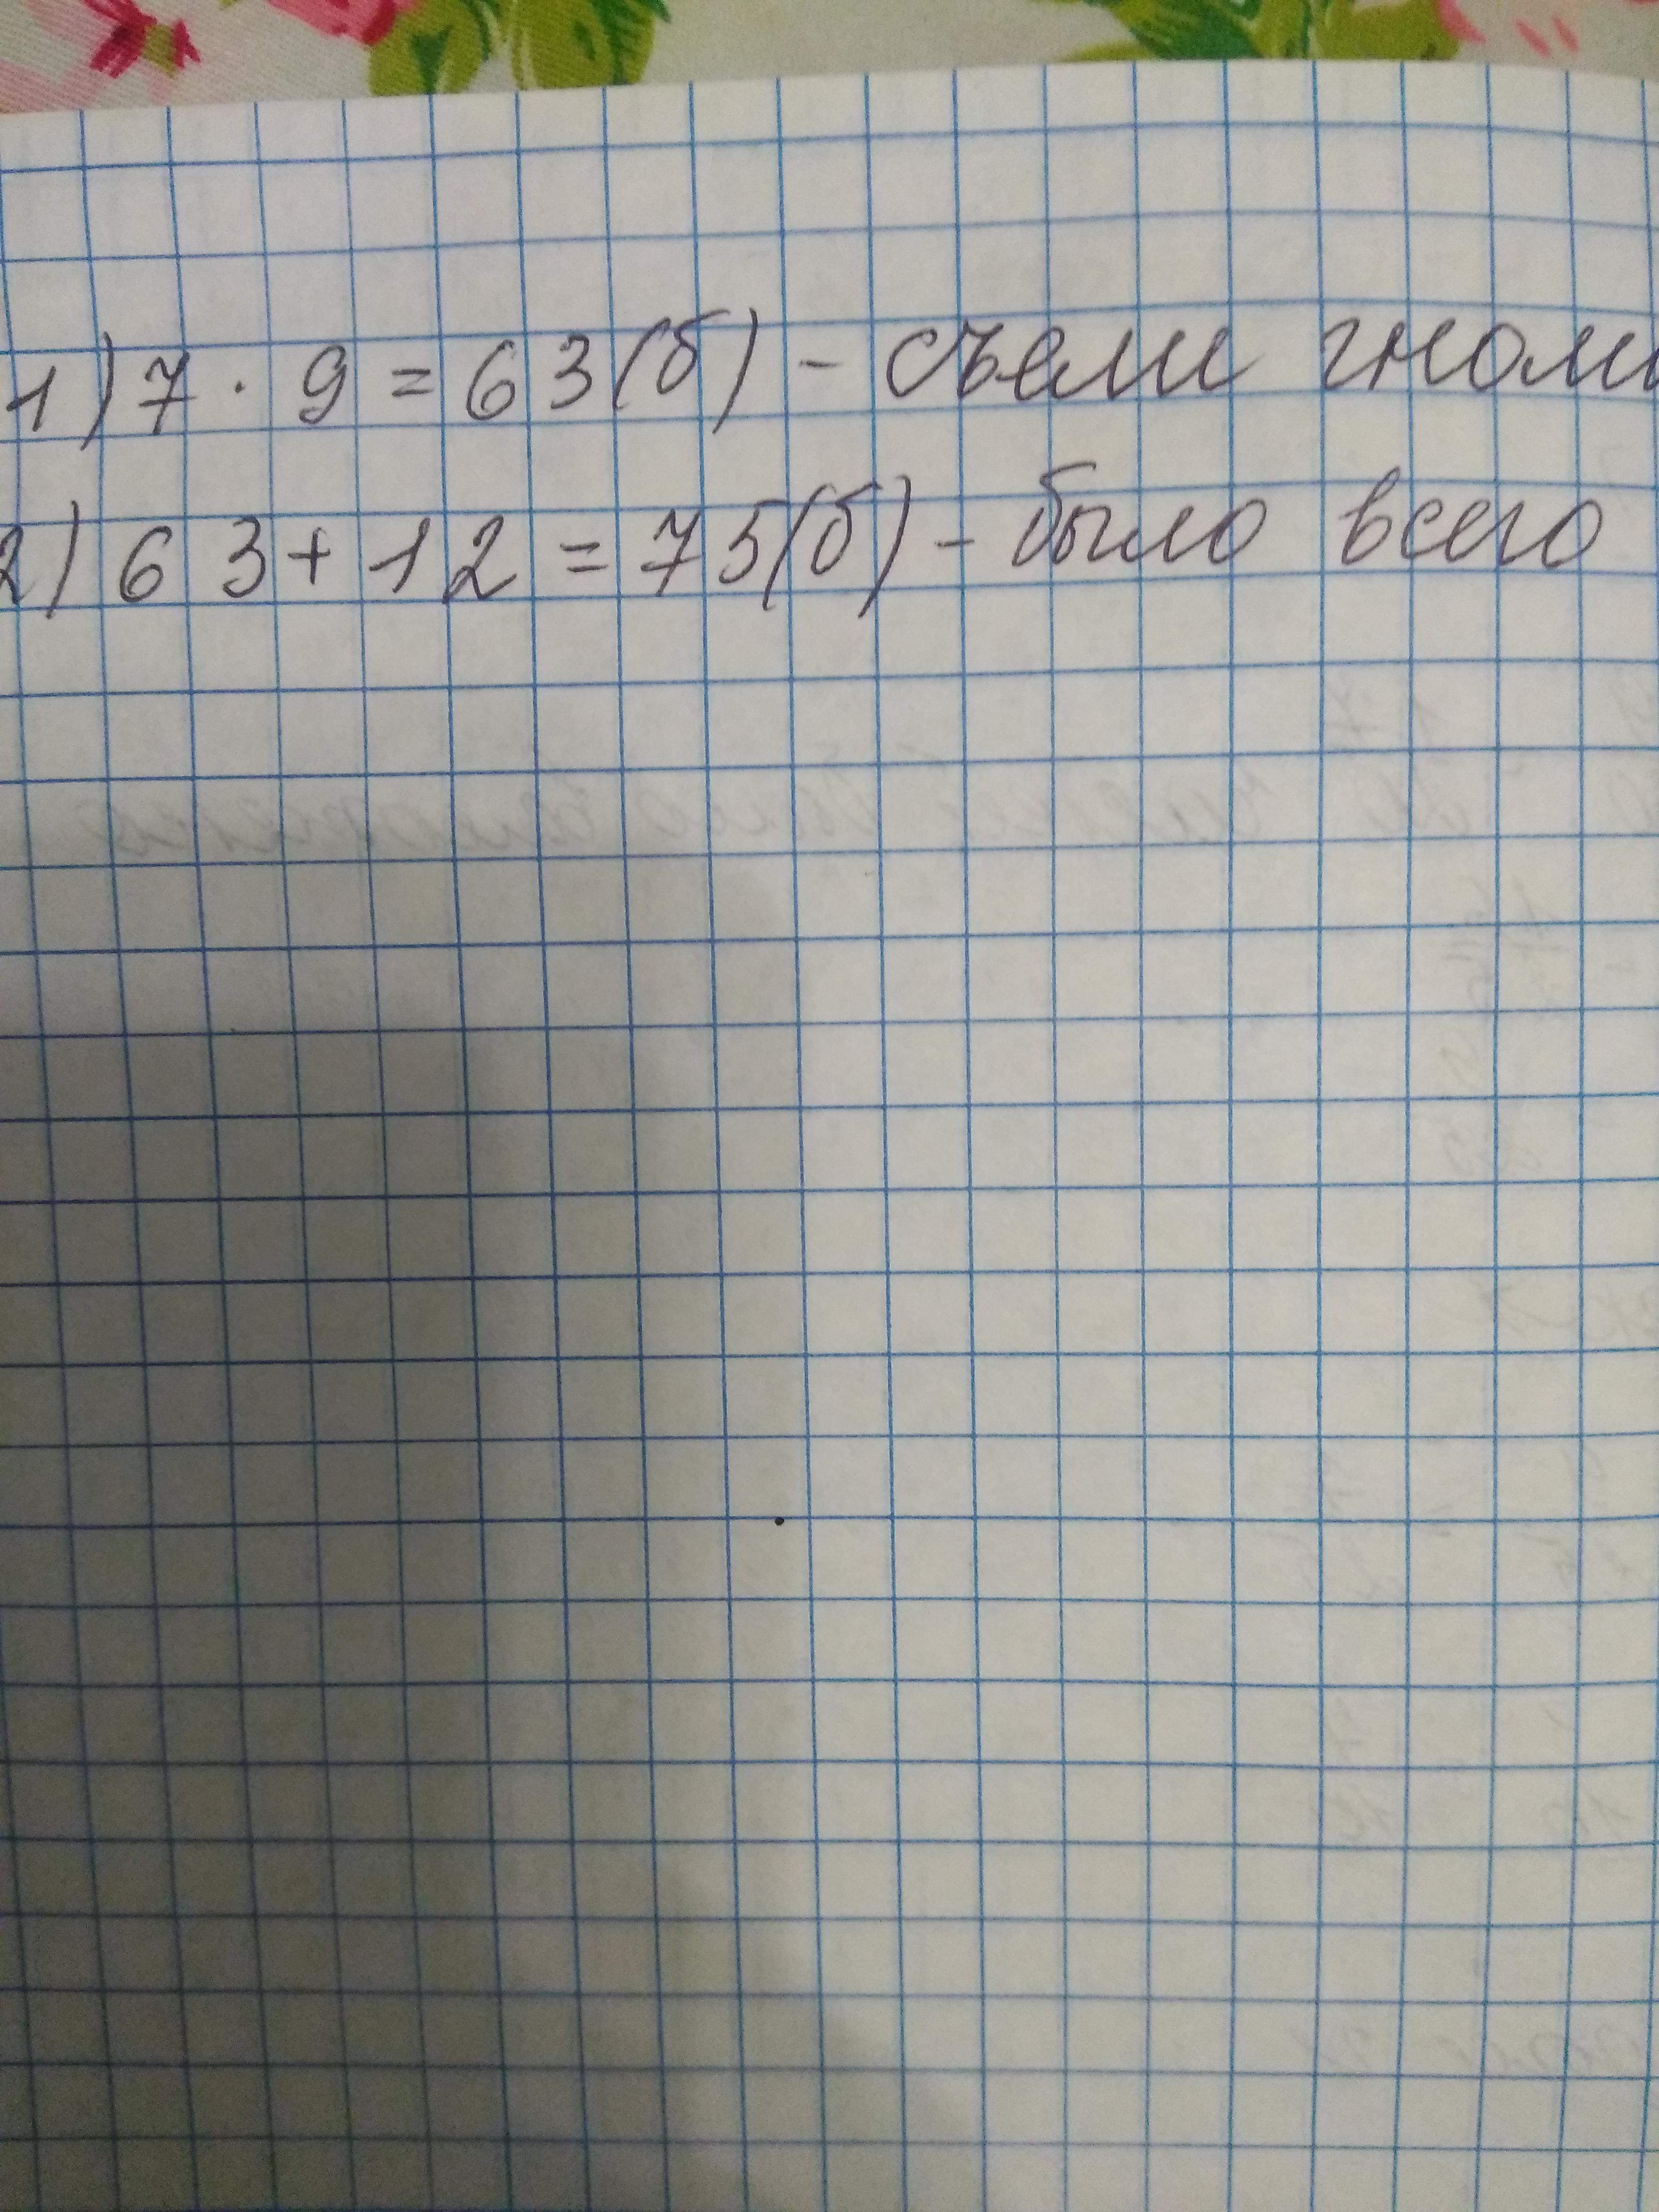 1) 7 · 9 = 63 (б) - съели гномы
2) 63 + 12 = 75 (б) - было всего